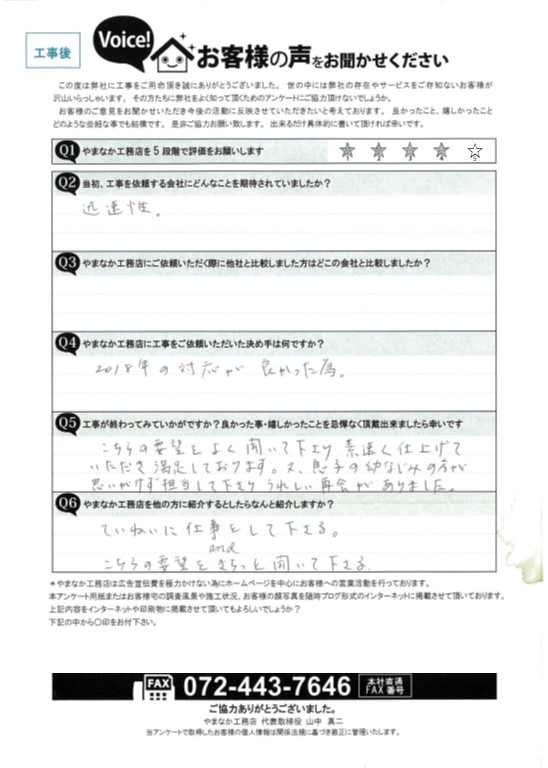 工事後
Voice!
お客様の声をお聞かせください
この度は弊社に工事をご用命頂き誠にありがとうございました。世の中には弊社の存在やサービスをご存知ないお客様が
沢山いらっしゃいます。その方たちに弊社をよく知って頂くためのアンケートにご協力頂けないでしょうか。
お客様のご意見をお聞かせいただき今後の活動に反映させていただきたいと考えております。良かったこと、嬉しかったこと
どのような些細な事でも結構です。是非ご協力お願い致します。出来るだけ具体的に書いて頂ければ幸いです。
Q1 やまなか工務店を5段階で評価をお願いします
Q2 当初、工事を依頼する会社にどんなことを期待されていましたか？
迅速性。
Q3 やまなか工務店にご依頼いただく際に他社と比較しました方はどこの会社と比較しましたか？
Q4 やまなか工務店に工事をご依頼いただいた決め手は何ですか？
2018年の対応が良かった為。
Q5 工事が終わってみていかがですか？良かった事・嬉しかったことを忌憚なく頂戴出来ましたら幸いです
こちらの要望をよく聞いて下さり素速く仕上げて
いただき満足しております。又、息子の幼なじみの方が
思いがけず担当して下さりうれしい再会がありました。
Q6 やまなか工務店を他の方に紹介するとしたらなんと紹介しますか？
ていねいに仕事をして下さる。
and
こちらの要望をきちっと聞いて下さる
＊やまなか工務店は広告宣伝費を極力かけない為にホームページを中心にお客様への営業活動を行っております。
本アンケート用紙またはお客様宅の調査風景や施工状況、お客様の顔写真を随時ブログ形式のインターネットに掲載させて頂いております。
上記内容をインターネットや印刷物に掲載させて頂いてもよろしいでしょうか？
下記の中から〇印をお付下さい。
FAX 072-443-7646 本社直通 FAX番号
ご協力ありがとうございました。
やまなか工務店 代表取締役 山中 真二
当アンケートで取得したお客様の個人情報は関係法規に基づき厳正に管理いたします。